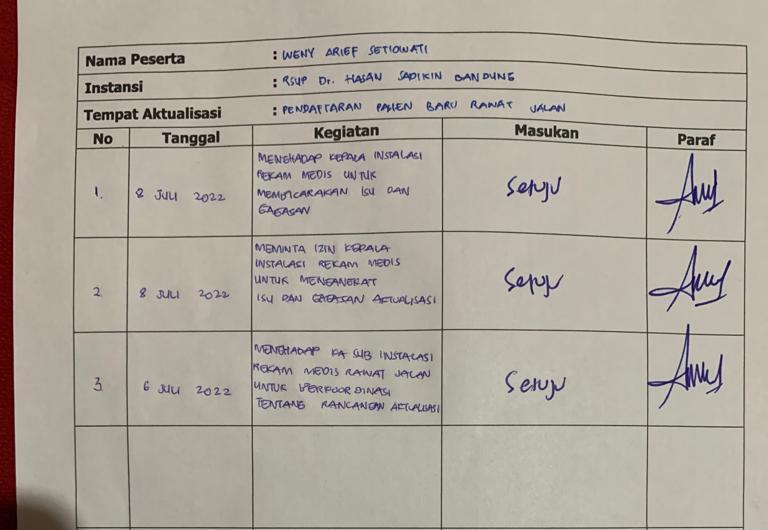 Nama Peserta : WENY ARIEF SETIOWATI
Instansi : RSUP Dr. HASAN SADIKIN BANDUNG
Tempat Aktualisasi : PENDAFTARAN PASIEN BARU RAWAT JALAN
No Tanggal Kegiatan Masukan Paraf
1. 8 JULI 2022
MENGHADAP KEPALA INSTALASI
REKAM MEDIS UNTUK
MEMBICARAKAN ISU DAN
GAGASAN
Setuju
2. 8 JULI 2022
MEMINTA IZIN KEPALA
INSTALASI REKAM MEDIS
UNTUK MENGANGKAT
ISU DAN GAGASAN AKTUALISASI
Setuju
3. 6 JULI 2022
MENGHADAP KA SUB INSTALASI
REKAM MEDIS RAWAT JALAN
UNTUK BERKOORDINASI
TENTANG RANCANGAN AKTUALISASI
Setuju